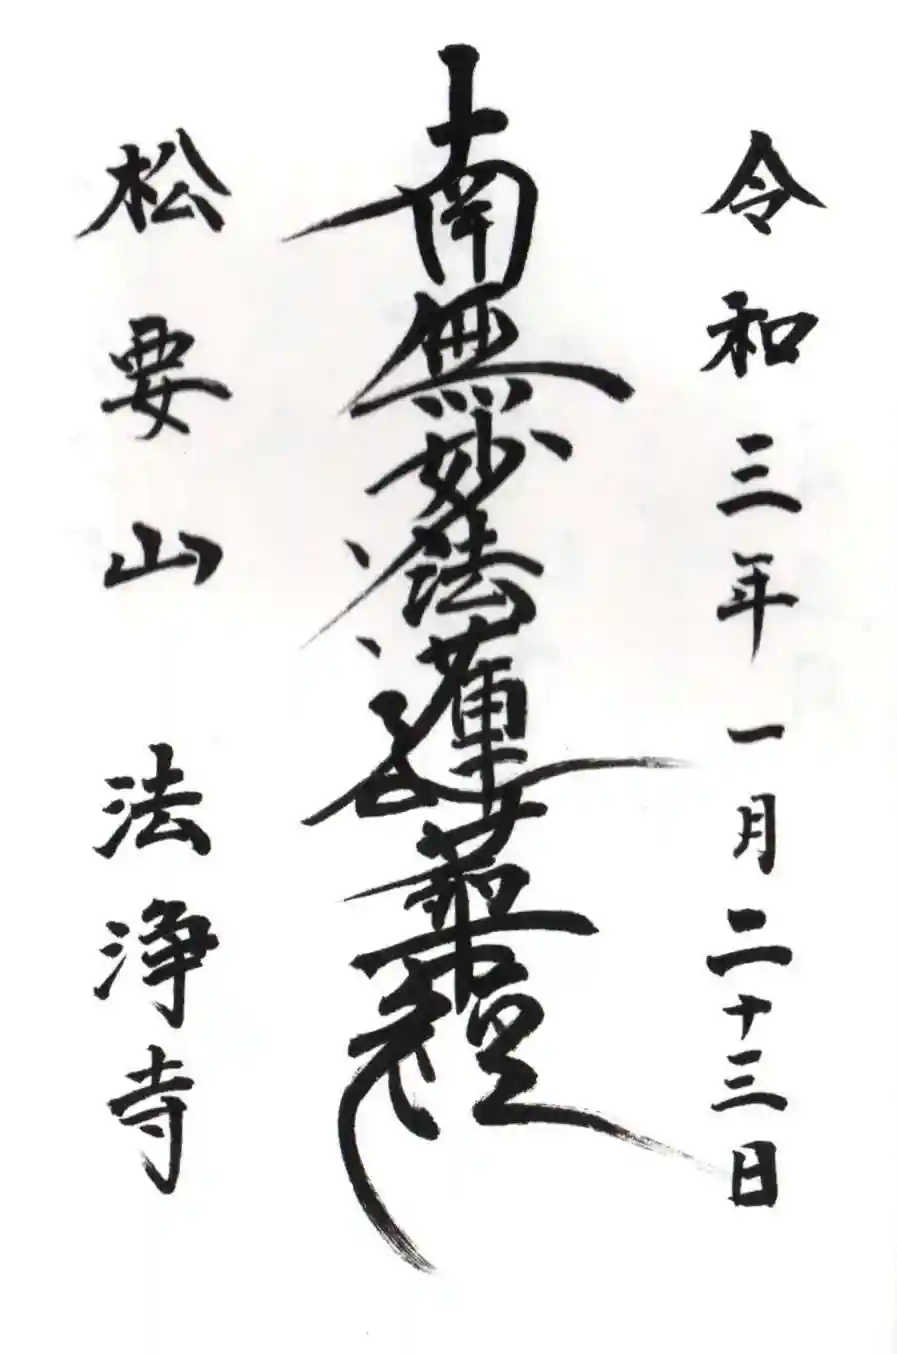 令和三年一月二十三日
南無妙法蓮華經
松要山 法浄寺